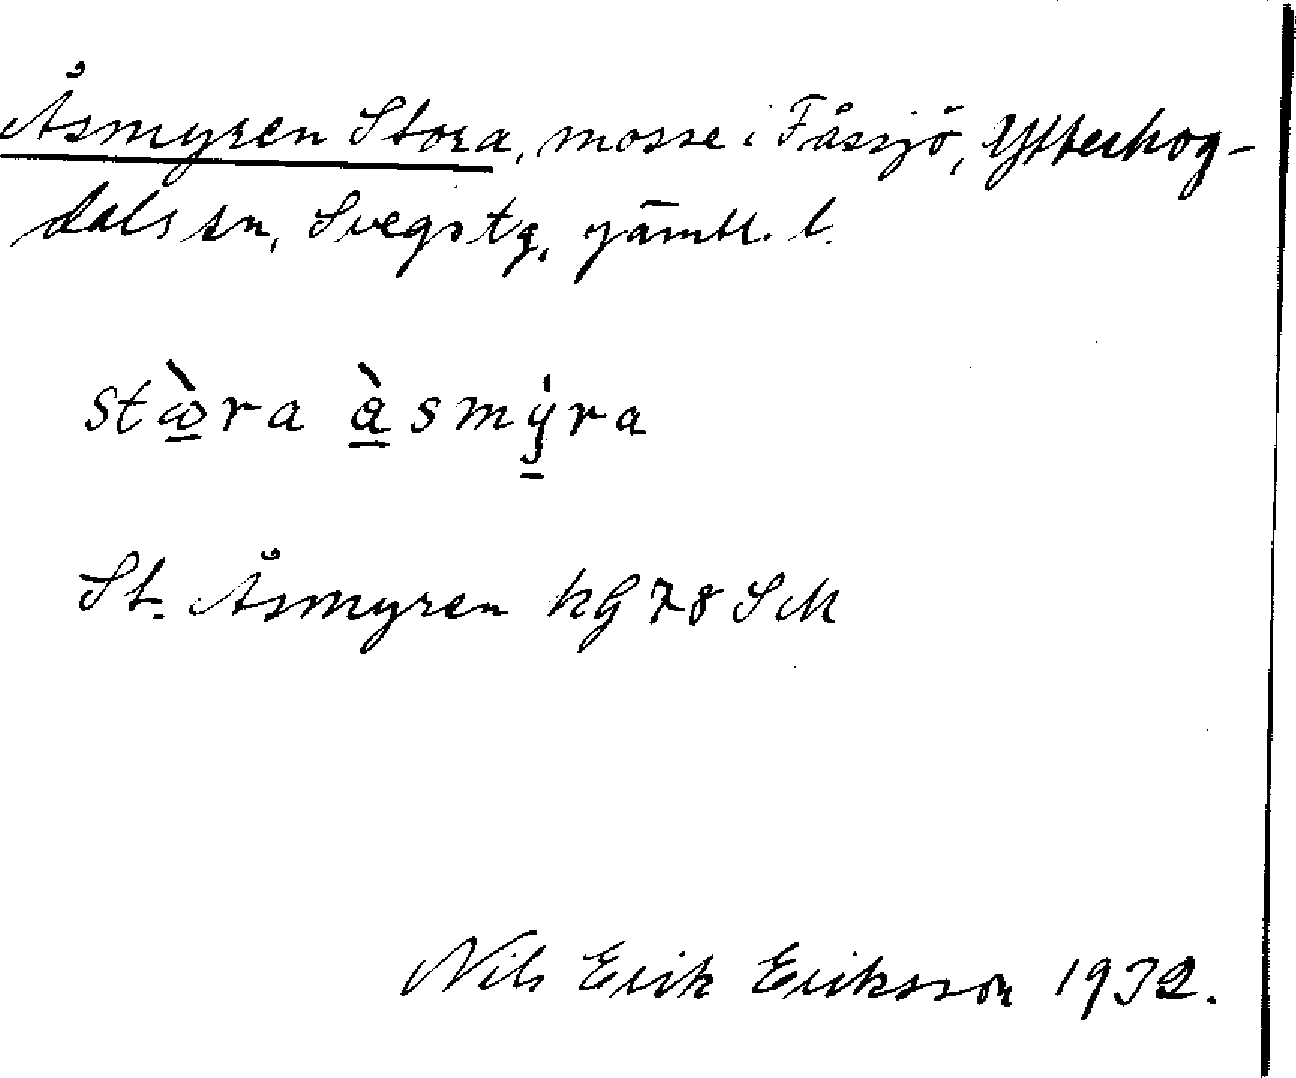 Åsmyren Stora, mosse i Fåssjö, Ytterhog-
dals sn, Svegs tg, Jämtl. l.
stòra àsmýra
St. Åsmyren kG 78 SM
Nils Erik Eriksson 1932.